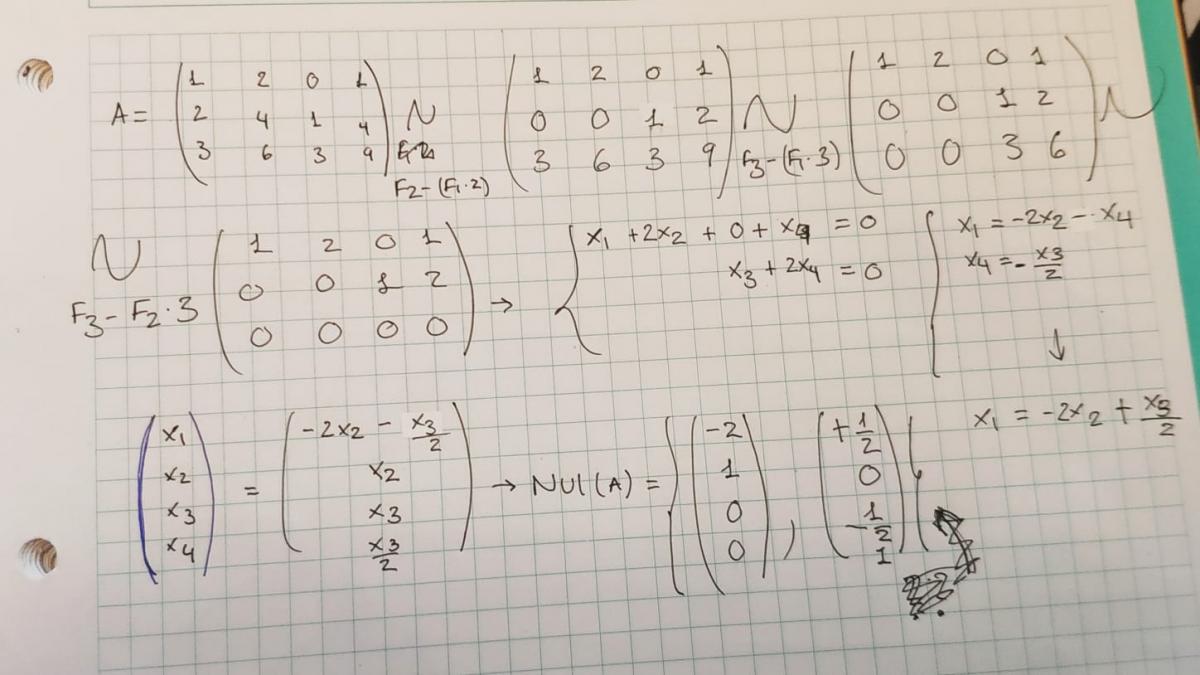 A = (1 2 0 1; 2 4 1 4; 3 6 3 9) ~ F2-(F1·2) (1 2 0 1; 0 0 1 2; 3 6 3 9) ~ F3-(F1·3) (1 2 0 1; 0 0 1 2; 0 0 3 6) ~
~ F3-F2·3 (1 2 0 1; 0 0 1 2; 0 0 0 0) → { x1 +2x2 + 0 + x4 = 0; x3 + 2x4 = 0 { x1 = -2x2 - x4; x4 = -x3/2
↓
x1 = -2x2 + x3/2
(x1; x2; x3; x4) = (-2x2 - x3/2; x2; x3; x3/2) → NUl(A) = {(-2; 1; 0; 0), (+1/2; 0; -1/2; 1)}